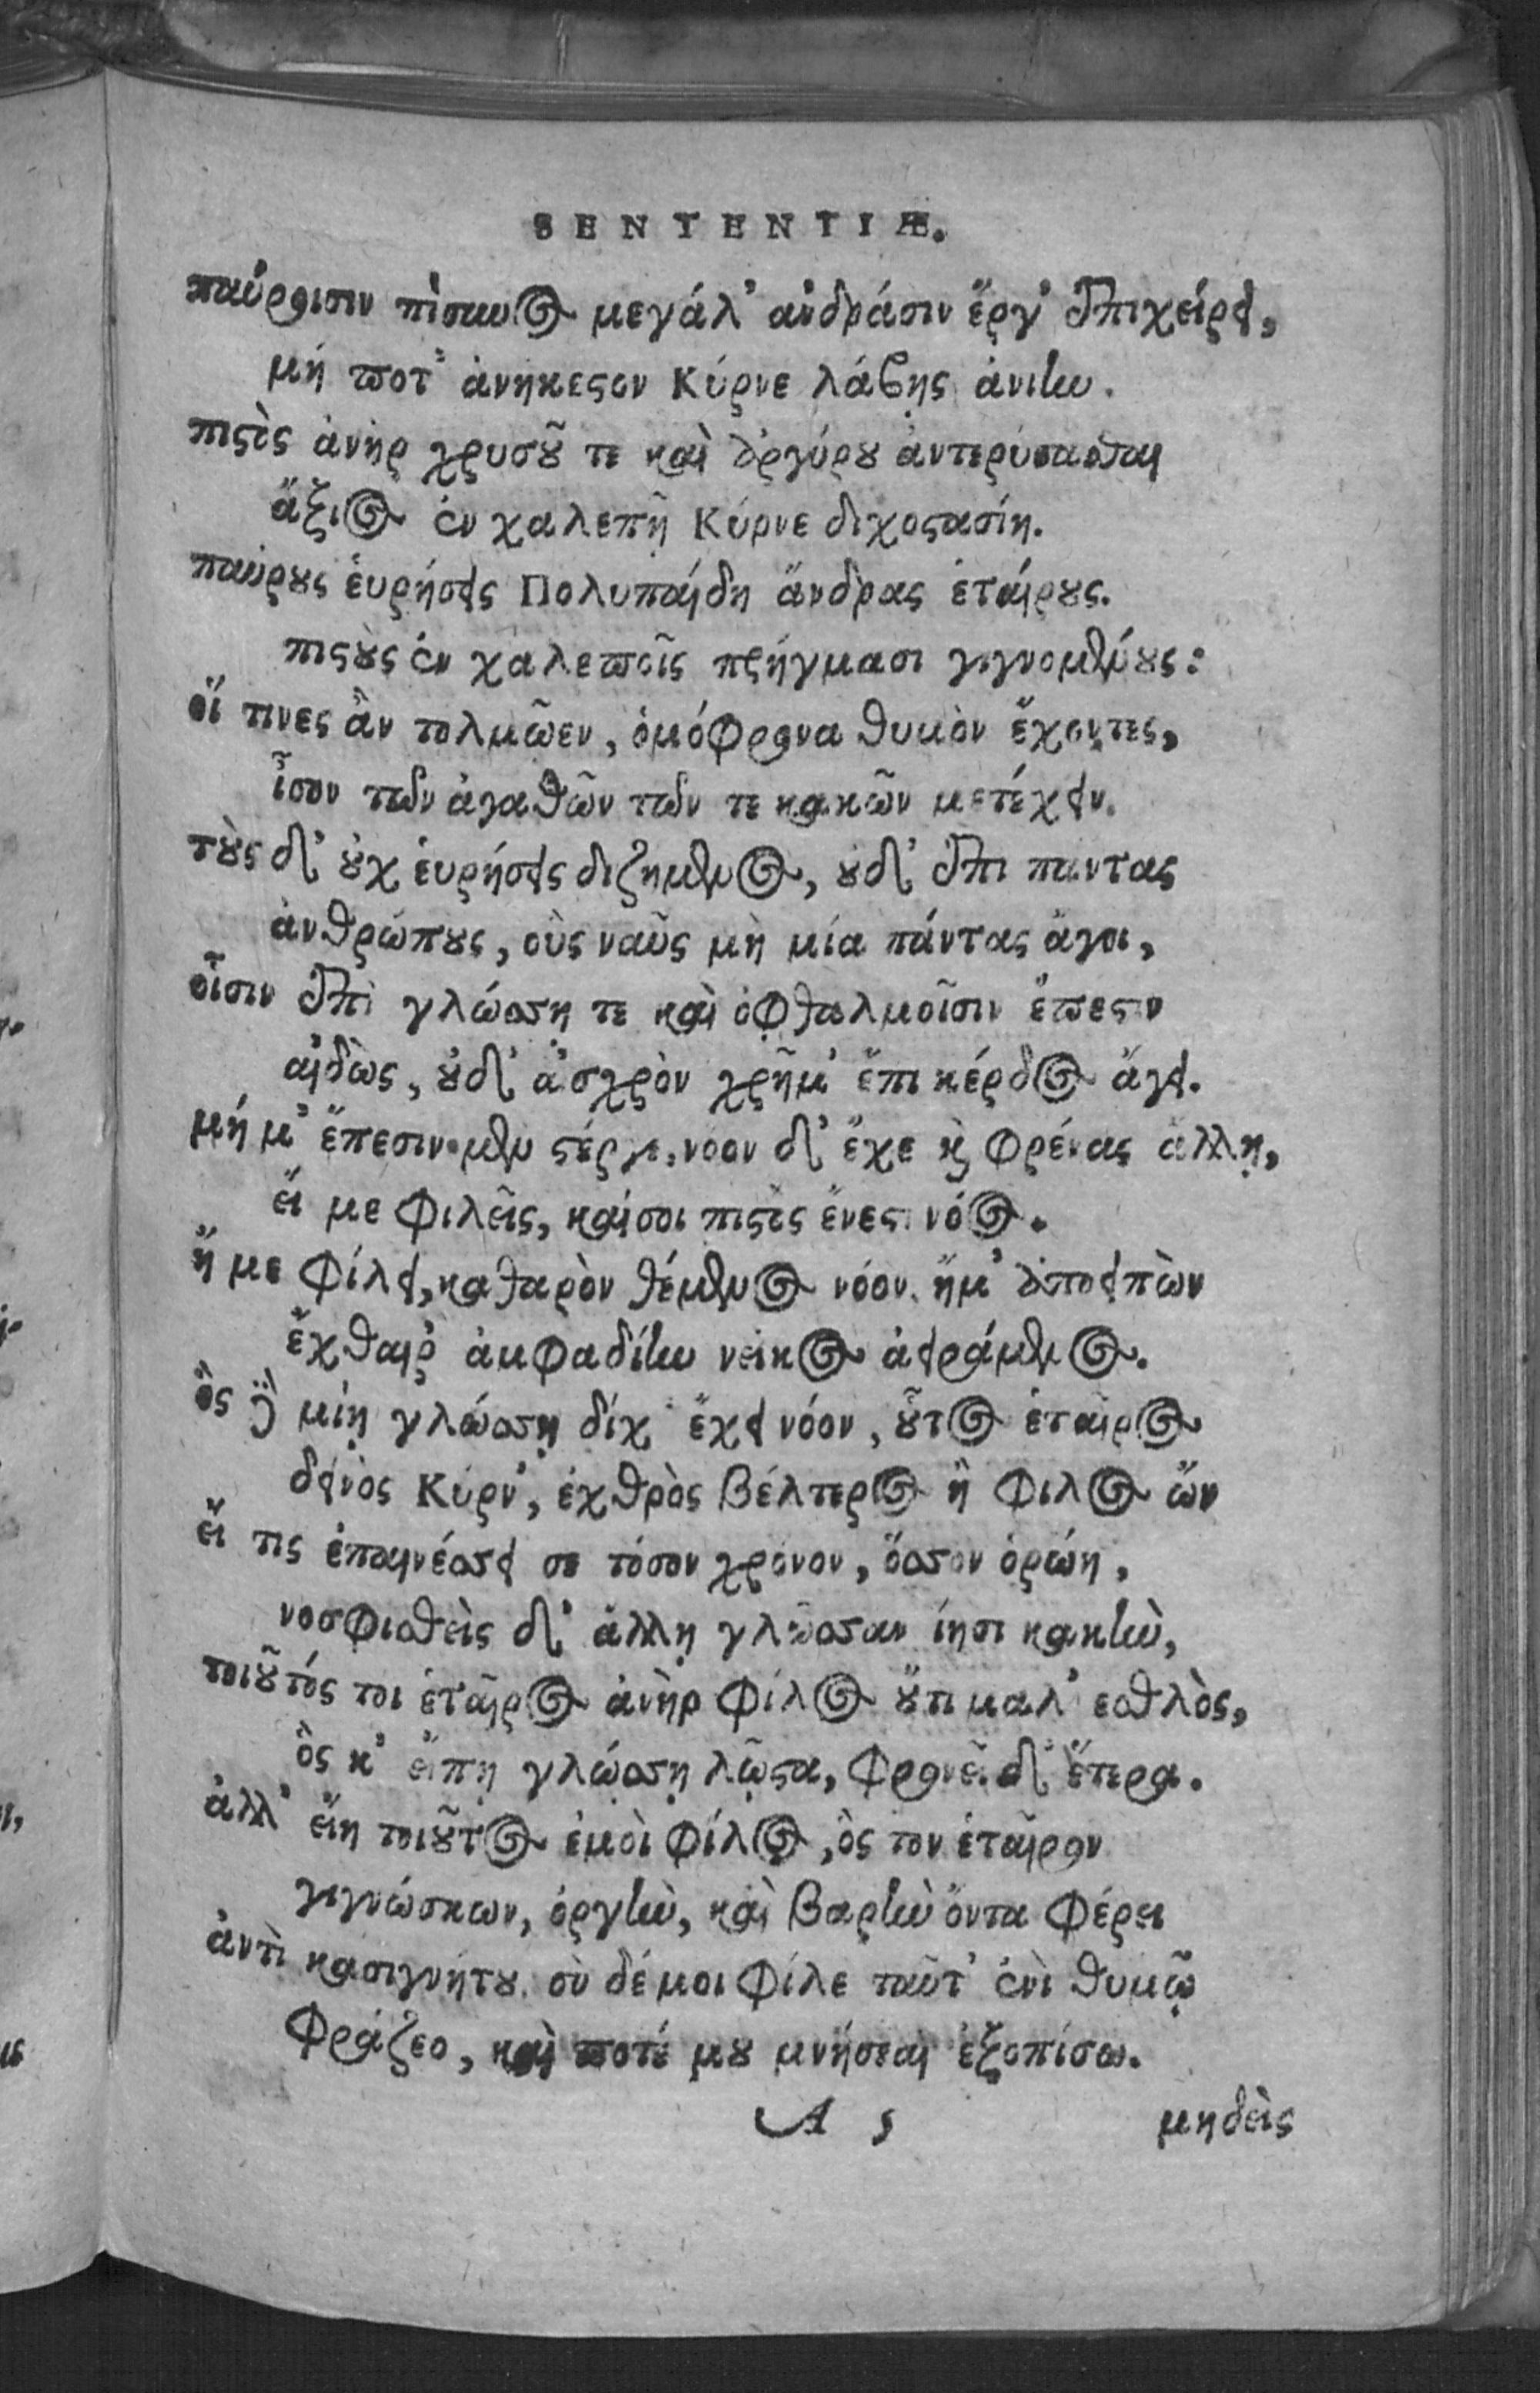 SENTENTIÆ.
παύροισιν πίσυνος μεγάλ' ἀνδράσιν ἔργ' ἐπιχείρει,
μή ποτ' ἀνήκεστον Κύρνε λάβῃς ἀνιίω.
πιστὸς ἀνὴρ χρυσοῦ τε καὶ ἀργύρου ἀντερύσασθαι
ἄξιος ἐν χαλεπῇ Κύρνε διχοστασίῃ.
παύρους ἑυρήσεις Πολυπαίδη ἄνδρας ἑταίρους.
πιστοὺς ἐν χαλεποῖς πρήγμασι γιγνομένους:
οἵ τινες ἂν τολμῷεν, ὁμόφρονα θυμὸν ἔχοντες,
ἶσον τῶν ἀγαθῶν τῶν τε κακῶν μετέχειν.
τοὺς δ' οὐχ ἑυρήσεις διζημενος, οὐδ' ἐπι παντας
ἀνθρώπους, οὓς ναῦς μὴ μία πάντας ἄγοι,
οἷσιν ἐπὶ γλώσσῃ τε καὶ ὀφθαλμοῖσιν ἔπεστιν
αἰδὼς, οὐδ' αἰσχρὸν χρῆμ' ἔπι κέρδος ἄγει.
μή μ' ἔπεσιν μεν στέργε, νοον δ' ἔχε καὶ φρένας ἄλλῃ,
εἴ με φιλεῖς, καίσοι πιστὸς ἔνεστι νόος.
ἤ με φίλει, καθαρὸν θέμενος νόον. ἤμ' ἀποειπὼν
ἔχθαιρ' ἀμφαδίην νεῖκος ἀειράμενος.
ὃς δὲ μίῃ γλώσσῃ δίχ' ἔχει νόον, οὗτος ἑταῖρος
δεινὸς Κύρν', ἐχθρὸς βέλτερος ἢ φίλος ὤν
εἴ τις ἐπαινέσσει σε τόσον χρόνον, ὅσσον ὁρῴη,
νοσφισθεὶς δ' ἄλλῃ γλῶσσαν ἵησι κακὴν,
τοιοῦτός τοι ἑταῖρος ἀνὴρ φίλος οὔτι μαλ' εσθλὸς,
ὃς κ' εἴπῃ γλώσσῃ λῷστα, φρονεῖ δ' ἕτερα.
ἀλλ' εἴη τοιοῦτος ἐμοὶ φίλος, ὃς τον ἑταῖρον
γιγνώσκων, ὀργὴν, καὶ βαρὺν ὄντα φέρει
ἀντὶ κασιγνήτου. σὺ δέ μοι φίλε ταῦτ' ἐνὶ θυμῷ
φράζεο, καὶ ποτέ μου μνήσεαι ἐξοπίσω.
A 5 μηδεὶς